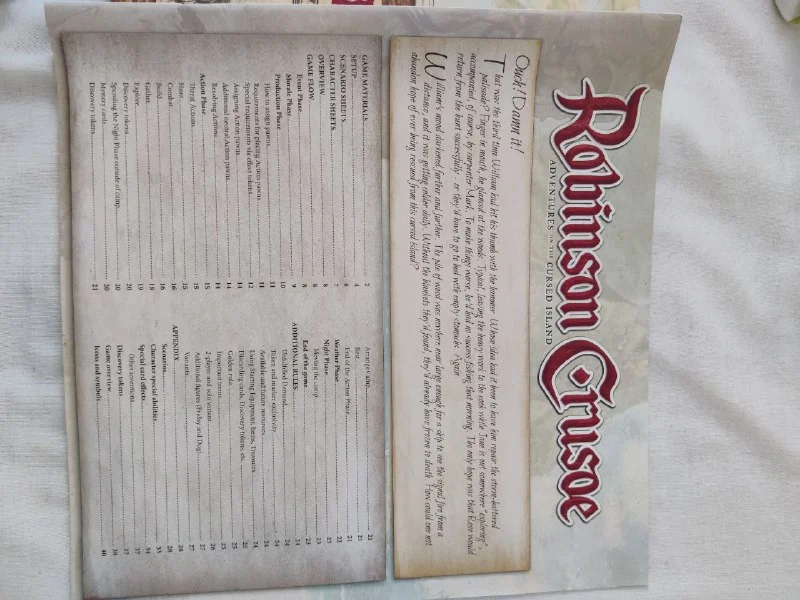 Robinson Crusoe
ADVENTURES ON THE CURSED ISLAND
Ouch! Damn it!
That was the third time William had hit his thumb with the hammer. Whose idea had it been to have him repair the storm-battered
palisade? Finger in mouth, he glanced at the woods. Typical, leaving the heavy work to the cook while Ivan is out somewhere "exploring",
accompanied, of course, by carpenter Mark. To make things worse, he'd had no success fishing that morning. The only hope was that Rose would
return from the hunt successfully - or they'd have to go to bed with empty stomachs. Again.
William's mood darkened further and further. The pile of wood was nowhere near large enough for a ship to see the signal fire from a
distance, and it was getting colder daily. Without the blankets they'd found, they'd already have frozen to death. How could one not
abandon hope of ever being rescued from this cursed island?
GAME MATERIALS 2
SETUP 4
SCENARIO SHEETS 6
CHARACTER SHEETS 7
OVERVIEW 8
GAME FLOW 8
Event Phase 8
Morale Phase 9
Production Phase 10
How to assign pawns 11
Requirements for placing Action pawns 11
Special requirements via effect tokens 12
Assigning Action pawns 14
Additional neutral Action pawns 14
Resolving Actions 14
Action Phase 15
Threat Actions 15
Hunt 15
Combat 16
Build 16
Gather 18
Explore 19
Discovery tokens 20
Spending the Night Phase outside of camp 20
Mystery cards 20
Discovery tokens 21
Arrange Camp 21
Rest 21
End of the Action Phase 21
Weather Phase 22
Night Phase 22
Moving the camp 23
End of the game 23
ADDITIONAL RULES 24
Unfulfilled Demand 24
Token and marker exclusivity 24
Available and future resources 24
Using Starting Equipment, Items, Treasures 24
Discarding cards, Discovery tokens, etc. 25
Golden rule 25
Important terms 25
2-player and solo variant 26
Additional figures (Friday and Dog) 27
Variants 27
APPENDIX 28
Scenarios 28
Character special abilities 33
Special card effects 34
Other questions 37
Discovery tokens 37
Game overview 38
Icons and symbols 40